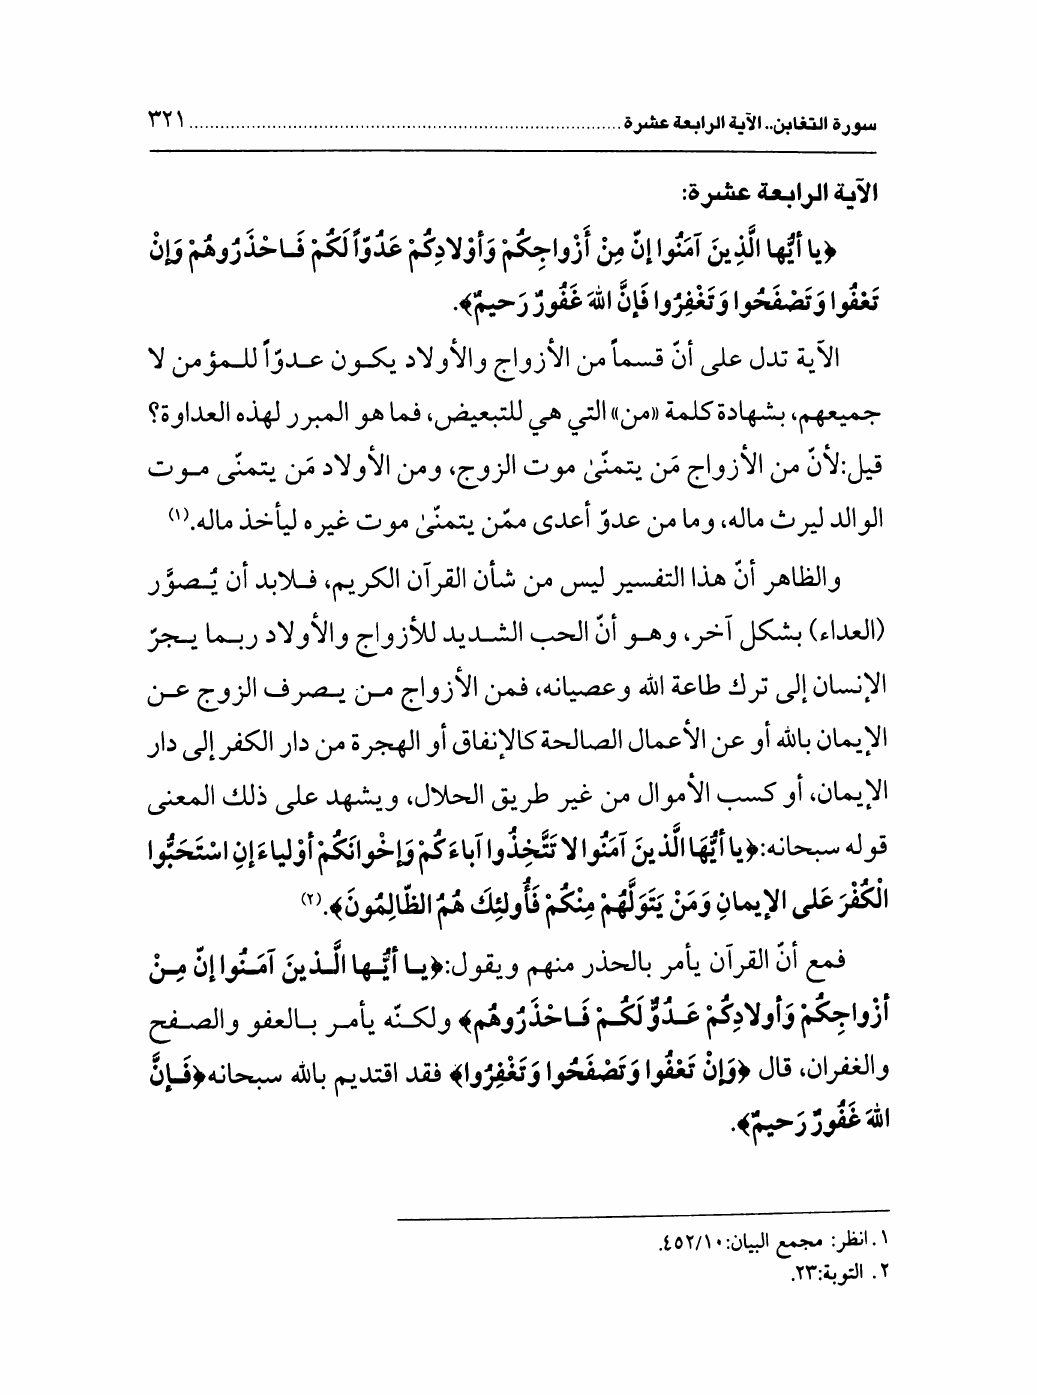 سورة التغابن.. الآية الرابعة عشرة ........................................................................ ٣٢١
الآية الرابعة عشرة:
﴿يا أيُّها الَّذِينَ آمَنُوا إنّ مِنْ أَزْواجِكُمْ وَأَوْلادِكُمْ عَدُوّاً لَكُمْ فَاحْذَرُوهُمْ وَإنْ
تَعْفُوا وَتَصْفَحُوا وَتَغْفِرُوا فَإنَّ اللهَ غَفُورٌ رَحيمٌ﴾.
الآية تدل على أنّ قسماً من الأزواج والأولاد يكون عدوّاً للمؤمن لا
جميعهم، بشهادة كلمة «من» التي هي للتبعيض، فما هو المبرر لهذه العداوة؟
قيل:لأنّ من الأزواج مَن يتمنّىٰ موت الزوج، ومن الأولاد مَن يتمنّى موت
الوالد ليرث ماله، وما من عدوّ أعدى ممّن يتمنّىٰ موت غيره ليأخذ ماله.(١)
والظاهر أنّ هذا التفسير ليس من شأن القرآن الكريم، فلابد أن يُصوَّر
(العداء) بشكل آخر، وهو أنّ الحب الشديد للأزواج والأولاد ربما يجرّ
الإنسان إلى ترك طاعة الله وعصيانه، فمن الأزواج من يصرف الزوج عن
الإيمان بالله أو عن الأعمال الصالحة كالإنفاق أو الهجرة من دار الكفر إلى دار
الإيمان، أو كسب الأموال من غير طريق الحلال، ويشهد على ذلك المعنى
قوله سبحانه:﴿يا أيُّهَا الَّذينَ آمَنُوا لا تَتَّخِذُوا آباءَكُمْ وَإخْوانَكُمْ أوْلياءَ إنِ اسْتَحَبُّوا
الْكُفْرَ عَلى الإيمانِ وَمَنْ يَتَوَلَّهُمْ مِنْكُمْ فَأُولئِكَ هُمُ الظّالِمُونَ﴾.(٢)
فمع أنّ القرآن يأمر بالحذر منهم ويقول:﴿يا أيُّها الَّذينَ آمَنُوا إنّ مِنْ
أزْواجِكُمْ وَأولادِكُمْ عَدُوٌّ لَكُمْ فَاحْذَرُوهُم﴾ ولكنّه يأمر بالعفو والصفح
والغفران، قال ﴿وَإنْ تَعْفُوا وَتَصْفَحُوا وَتَغْفِرُوا﴾ فقد اقتديم بالله سبحانه﴿فَإنَّ
اللهَ غَفُورٌ رَحيمٌ﴾.
١. انظر: مجمع البيان:١٠/٤٥٢.
٢. التوبة:٢٣.